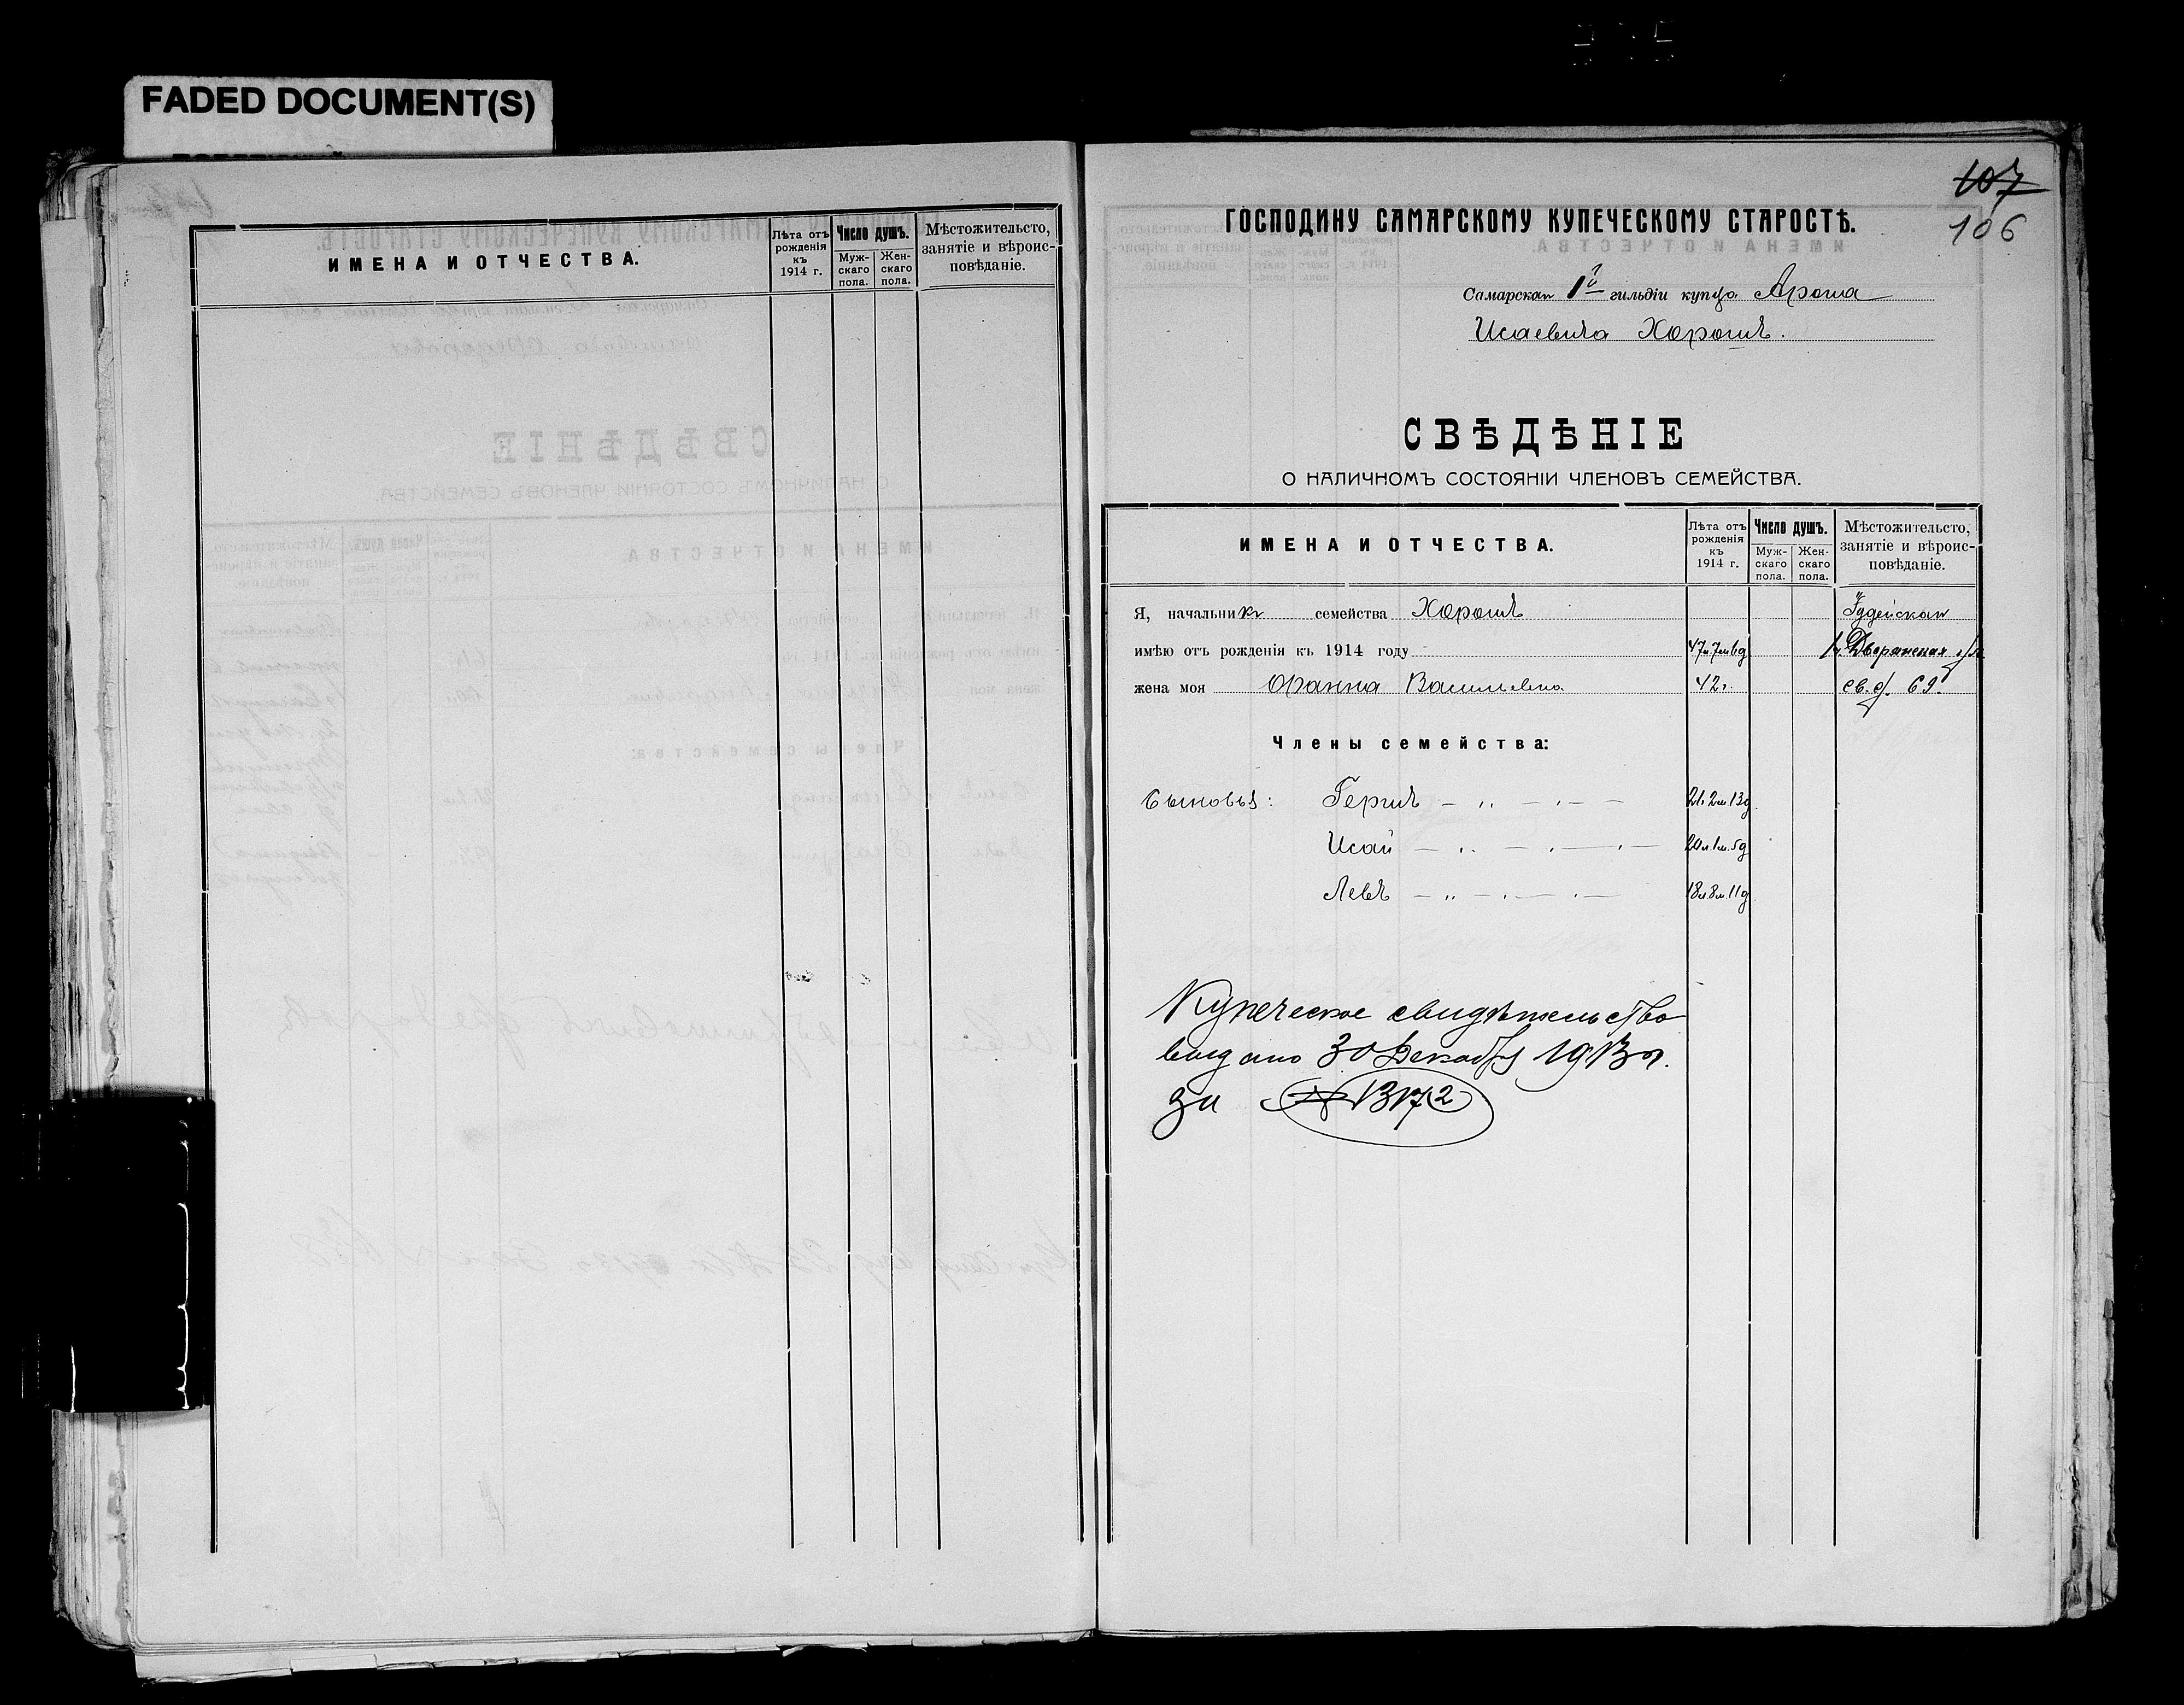 FADED DOCUMENT(S)
ИМЕНА И ОТЧЕСТВА.
Лѣта отъ рожденія къ 1914 г.
Число душъ.
Муж-скаго пола.
Жен-скаго пола.
Мѣстожительсто, занятіе и вѣроис-повѣданіе.
107
106
ГОСПОДИНУ САМАРСКОМУ КУПЕЧЕСКОМУ СТАРОСТѢ.
Самарскаго 1й гильдіи купца Арона
Исаевича Хорошъ.
СВѢДѢНІЕ
О НАЛИЧНОМЪ СОСТОЯНІИ ЧЛЕНОВЪ СЕМЕЙСТВА.
ИМЕНА И ОТЧЕСТВА.
Лѣта отъ рожденія къ 1914 г.
Число душъ.
Муж-скаго пола.
Жен-скаго пола.
Мѣстожительсто, занятіе и вѣроис-повѣданіе.
Я, начальникъ семейства Хорошъ Іудейская
имѣю отъ рожденія къ 1914 году 47л. 7м. 6д Дворянская
жена моя Франя Васильевна 42г. св. д. 69.
Члены семейства:
Сыновья: Гершъ — „ — „ — 21г. 2м. 13д
Исай — „ — „ — „ — 20л. 1м. 5д
Левъ — „ — „ — „ — 18л. 8м. 11д
Купеческое свидѣтельство
выдано 30 Декабря 1913 г.
за № 13172